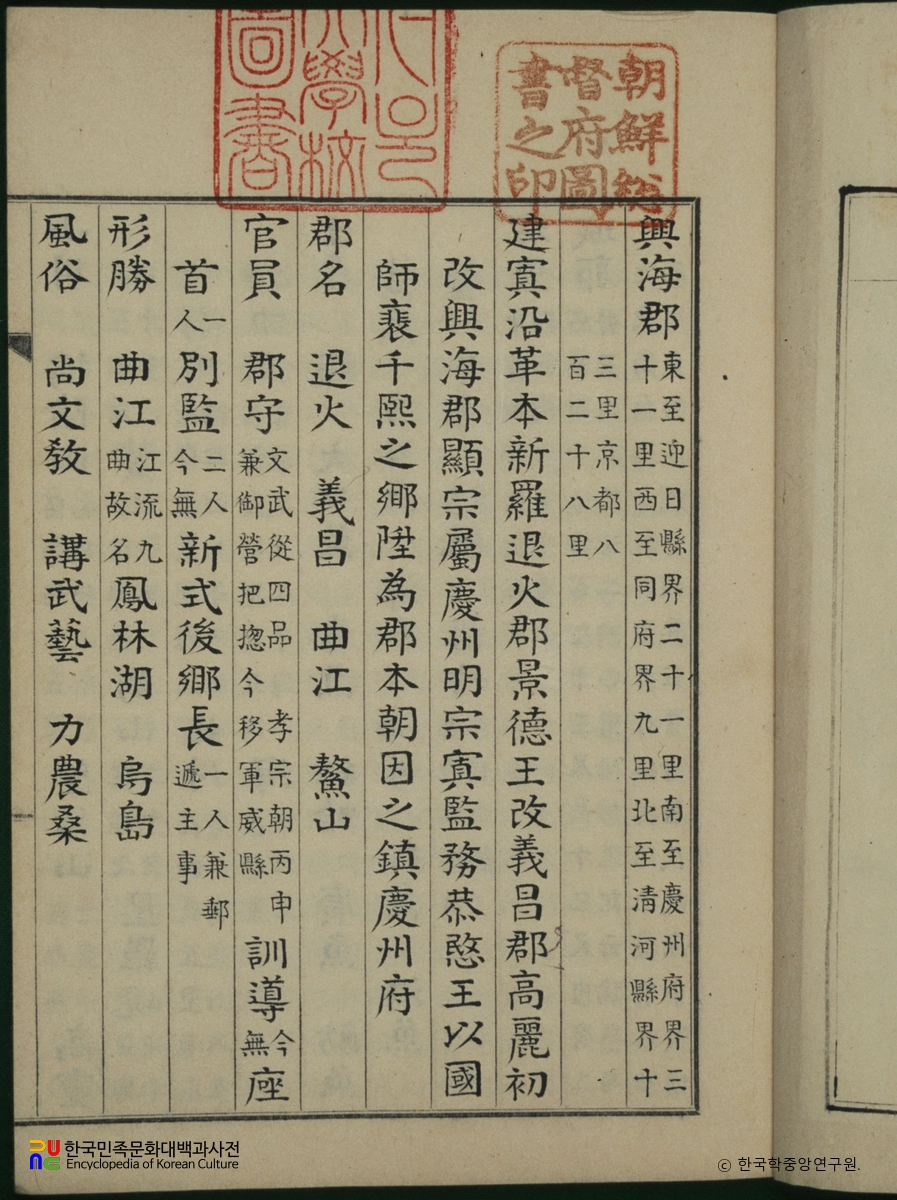 朝鮮総
督府圖
書之印
大學校
圖書
興海郡 東至迎日縣界二十一里南至慶州府界三
十一里西至同府界九里北至清河縣界十
三里京都八
百二十八里
建寘沿革本新羅退火郡景德王改義昌郡高麗初
改興海郡顯宗屬慶州明宗寘監務恭愍王以國
師裵千熙之鄉陞為郡本朝因之鎮慶州府
郡名 退火 義昌 曲江 鰲山
官員 郡守 文武從四品 孝宗朝丙申
兼御營把摠今移軍威縣 訓導 今無 座
首 一人 別監 二人今無 新式後鄉長 一人兼郵遞主事
形勝 曲江 江流九曲故名 鳳林湖 烏島
風俗 尚文教 講武藝 力農桑
한국민족문화대백과사전
Encyclopedia of Korean Culture
© 한국학중앙연구원.